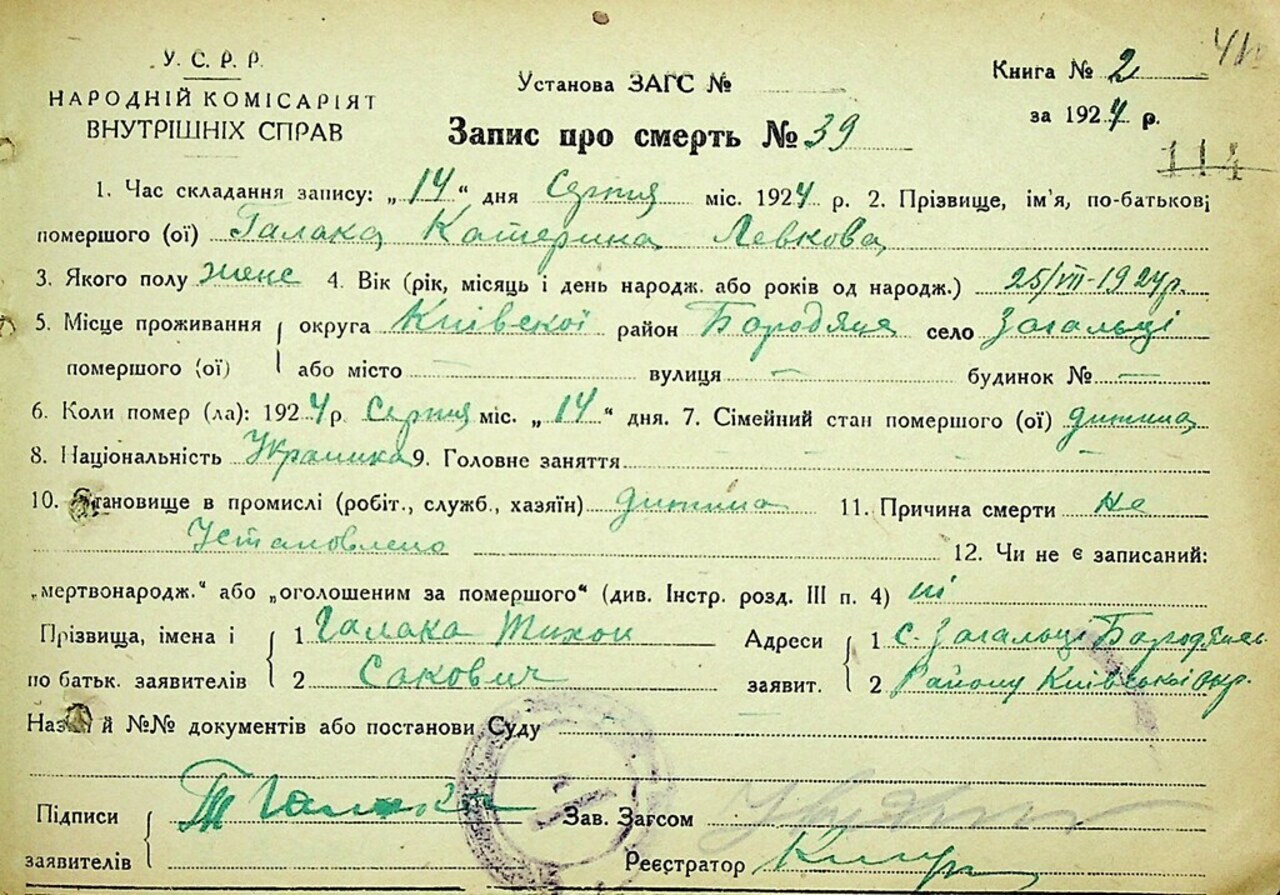 У. С. Р. Р.
НАРОДНІЙ КОМІСАРІЯТ
ВНУТРІШНІХ СПРАВ
Установа ЗАГС №
Книга № 2
за 1924 р.
114
Запис про смерть № 39
1. Час складання запису: „14“ дня Серпня міс. 1924 р. 2. Прізвище, ім'я, по-батькові
помершого (ої) Галака Катерина Левкова
3. Якого полу женс 4. Вік (рік, місяць і день народж. або років од народж.) 25/VII-1924р.
5. Місце проживання округа Київскої район Бородянс село Загальці
помершого (ої) або місто — вулиця — будинок № —
6. Коли помер (ла): 1924 р. Серпня міс. „14“ дня. 7. Сімейний стан помершого (ої) дитина
8. Національність Українка 9. Головне заняття
10. Становище в промислі (робіт., служб., хазяїн) дитина 11. Причина смерти не
Установлено 12. Чи не є записаний:
„мертвонародж.“ або „оголошеним за помершого“ (див. Інстр. розд. III п. 4) ні
Прізвища, імена і 1 Галака Тихон Адреси 1 с. Загальці Бородянс
по батьк. заявителів 2 Сакович заявит. 2 Району Київської окр.
Назви й №№ документів або постанови Суду
Підписи Т Галака Зав. Загсом
заявителів Реєстратор